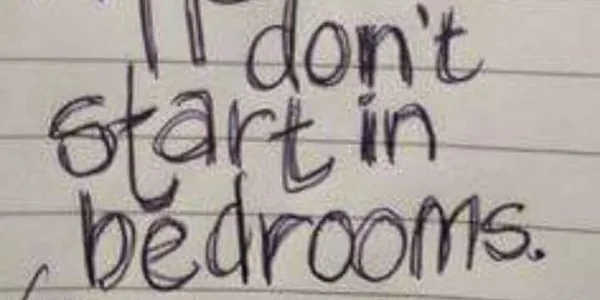 don't
start in
bedrooms.